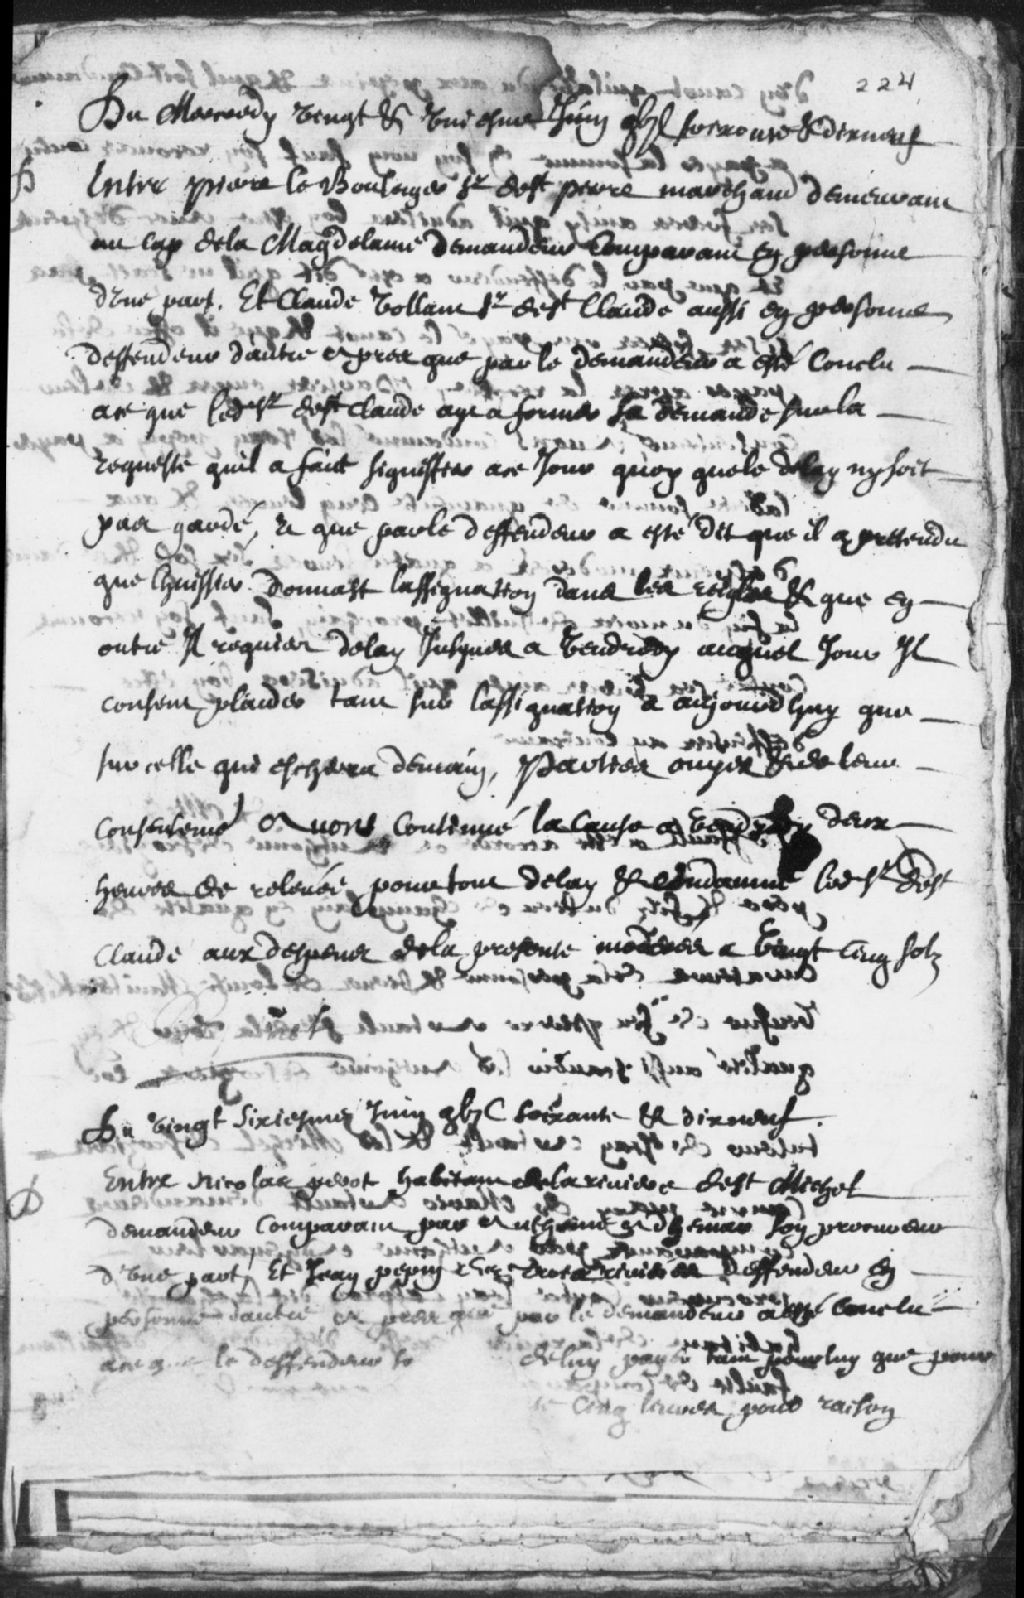 224
Du Mecredy vingt & uniesme Juin gbjC soixante & dixneuf
Entre pierre le Boulenger Sr de st pierre marchand demeurant
au cap dela Magdelaine demandeur comparant en personne
dune part. Et Claude Vollant Sr de st Claude aussi en personne
deffendeur dautre apres que par le demandeur a esté conclu
ace que led Sr de st Claude aye a former sa demande sur la
requeste quil a fait signiffier ace Jour quoy que le delay ny soit
pas gardé, Et que par le deffendeur a esté dit que il a pretendu
que lhuissier donnast lassignation dans les reigles & que en
outre Il requier delay Jusques a vendredy auquel Jour Il
consent plaider tant sur lassignation a aujourdhuy que
sur celle qui eschera demain, Parties ouyes & de leur
consentemt avons continué la cause a vendredy deux
heures de relevée pour tout delay & condamné led Sr de st
Claude aux despens dela presente moderes a vingt cinq solz
Du vingt sixiesme Juin gbjC soixante & dixneuf.
Entre Nicolas perot habitant de la riviere de st Michel
demandeur comparant par Anthoine Adhemar son procureur
d'une part, Et Jean pepin deffendeur en
personne dautre apres que par le demandeur a esté conclu
ace que le deffendeur de luy payer tant pour luy que pour
cinq livres pour raison